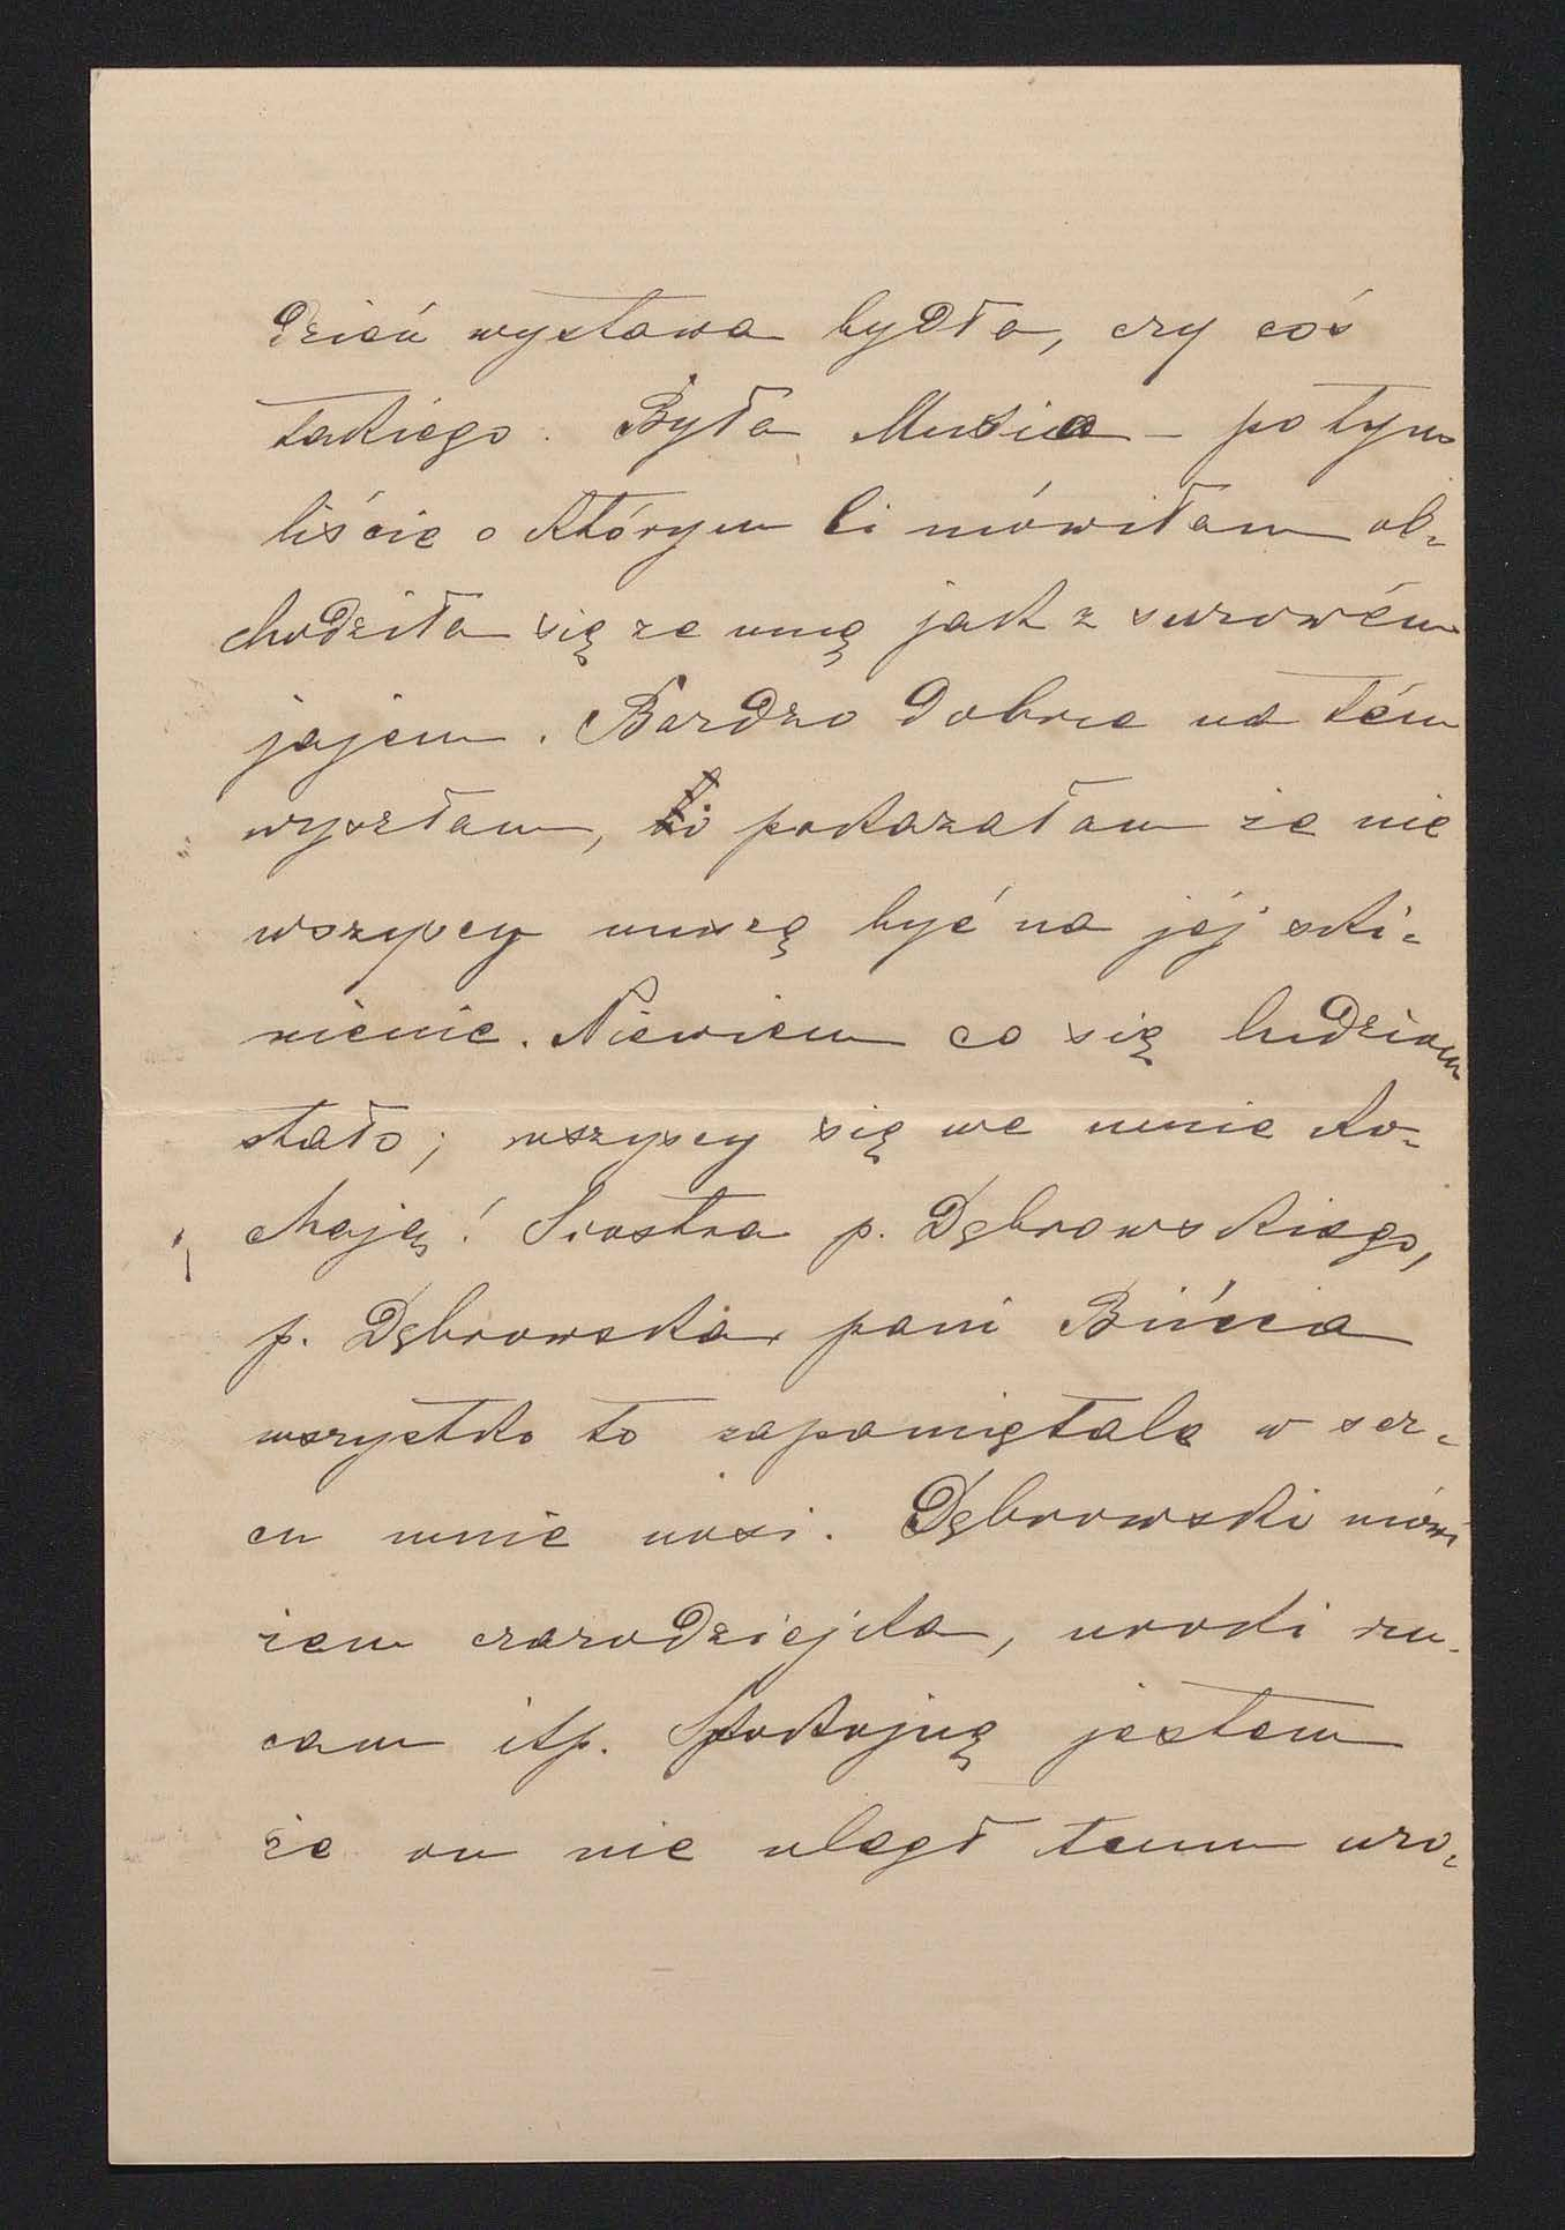 dzień wystawa bydła, czy coś
takiego. Była Musia – po tym
liście o którym Ci mówiłam ob-
chodziła się ze mną jak z surowém
jajem. Bardzo dobrze na tém
wyszłam, i pokazałam że nie
wszyscy muszą być na jéj ski-
nienie. Niewiem co się ludziom
stało; wszyscy się we mnie ko-
chają! Siostra p. Dąbrowskiego,
p. Dąbrowska, pani
wszystko to zapamiętale w ser-
cu mnie nosi. Dąbrowski mówi
żem czarodziejka, uroki rzu-
cam itp. Spokojną jestem
że on nie uległ temu uro-